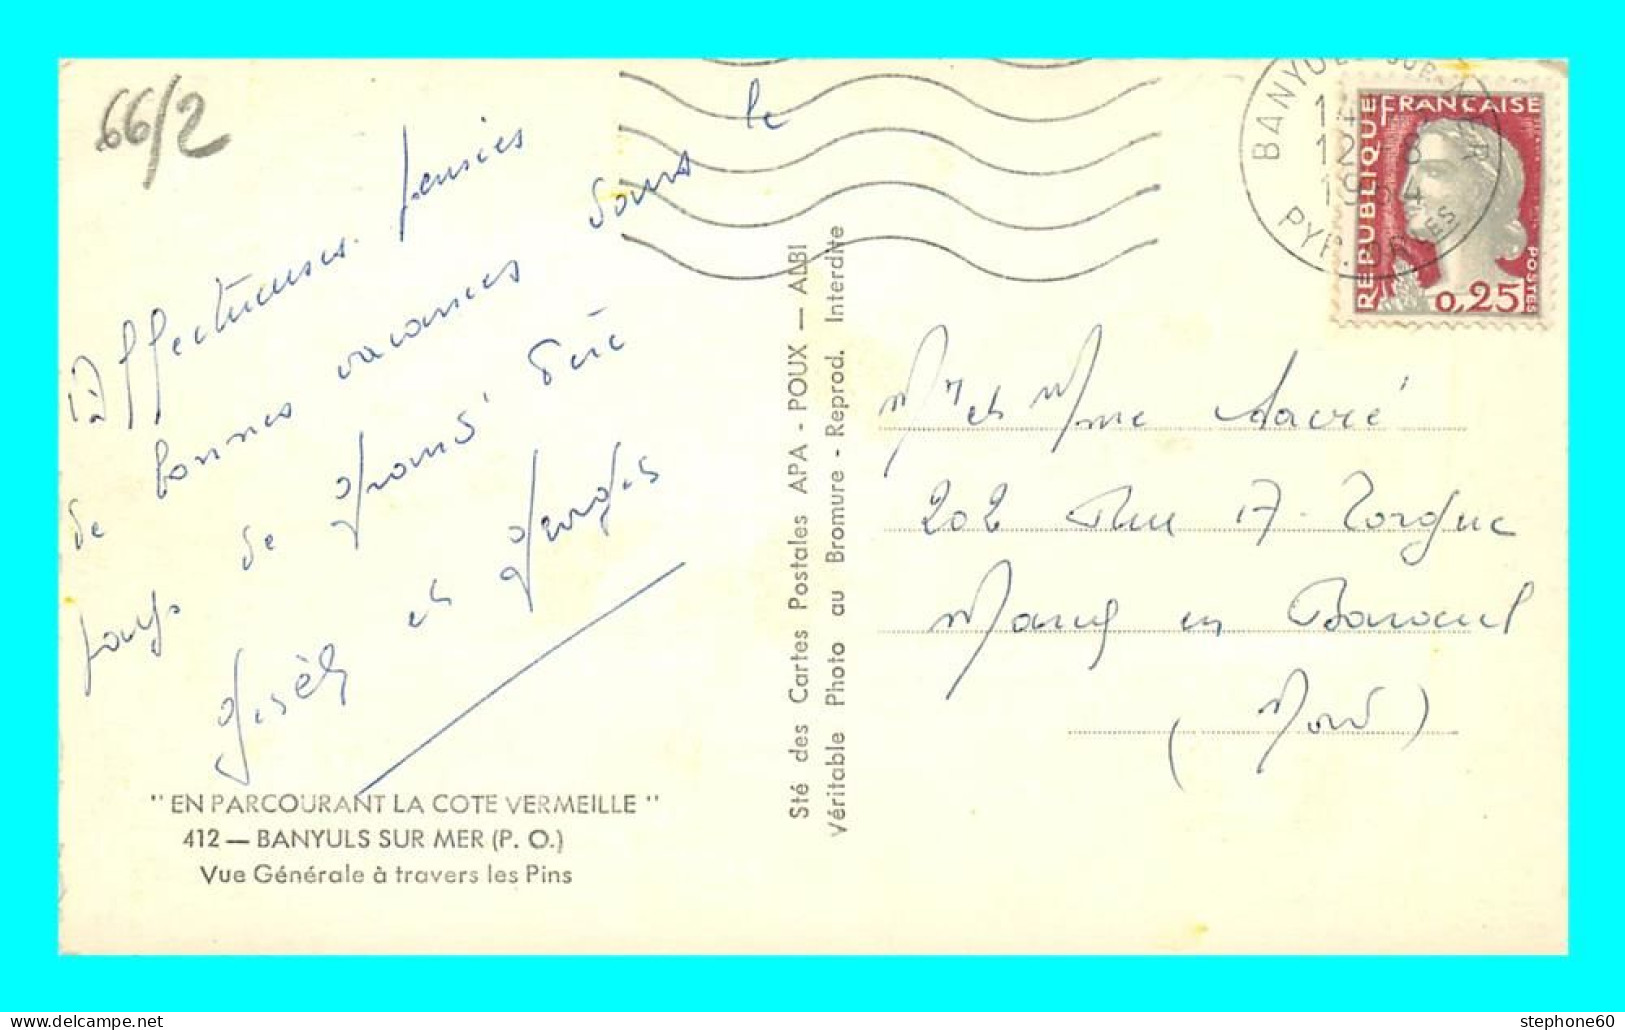 66/2
Affectueuses pensées
de bonnes vacances dans le
pays de grand' père
Gisèle et Georges
"EN PARCOURANT LA COTE VERMEILLE"
412 — BANYULS SUR MER (P. O.)
Vue Générale à travers les Pins
Sté des Cartes Postales APA - POUX — ALBI
Véritable Photo au Bromure - Reprod. Interdite
BANYULS SUR MER
12 8
PYR. ORIENTALES
REPUBLIQUE FRANÇAISE
POSTES
0,25
Mr et Mme Sacré
202 Rue A. Torgue
Marcq en Baroeul
(Nord)
stephone60